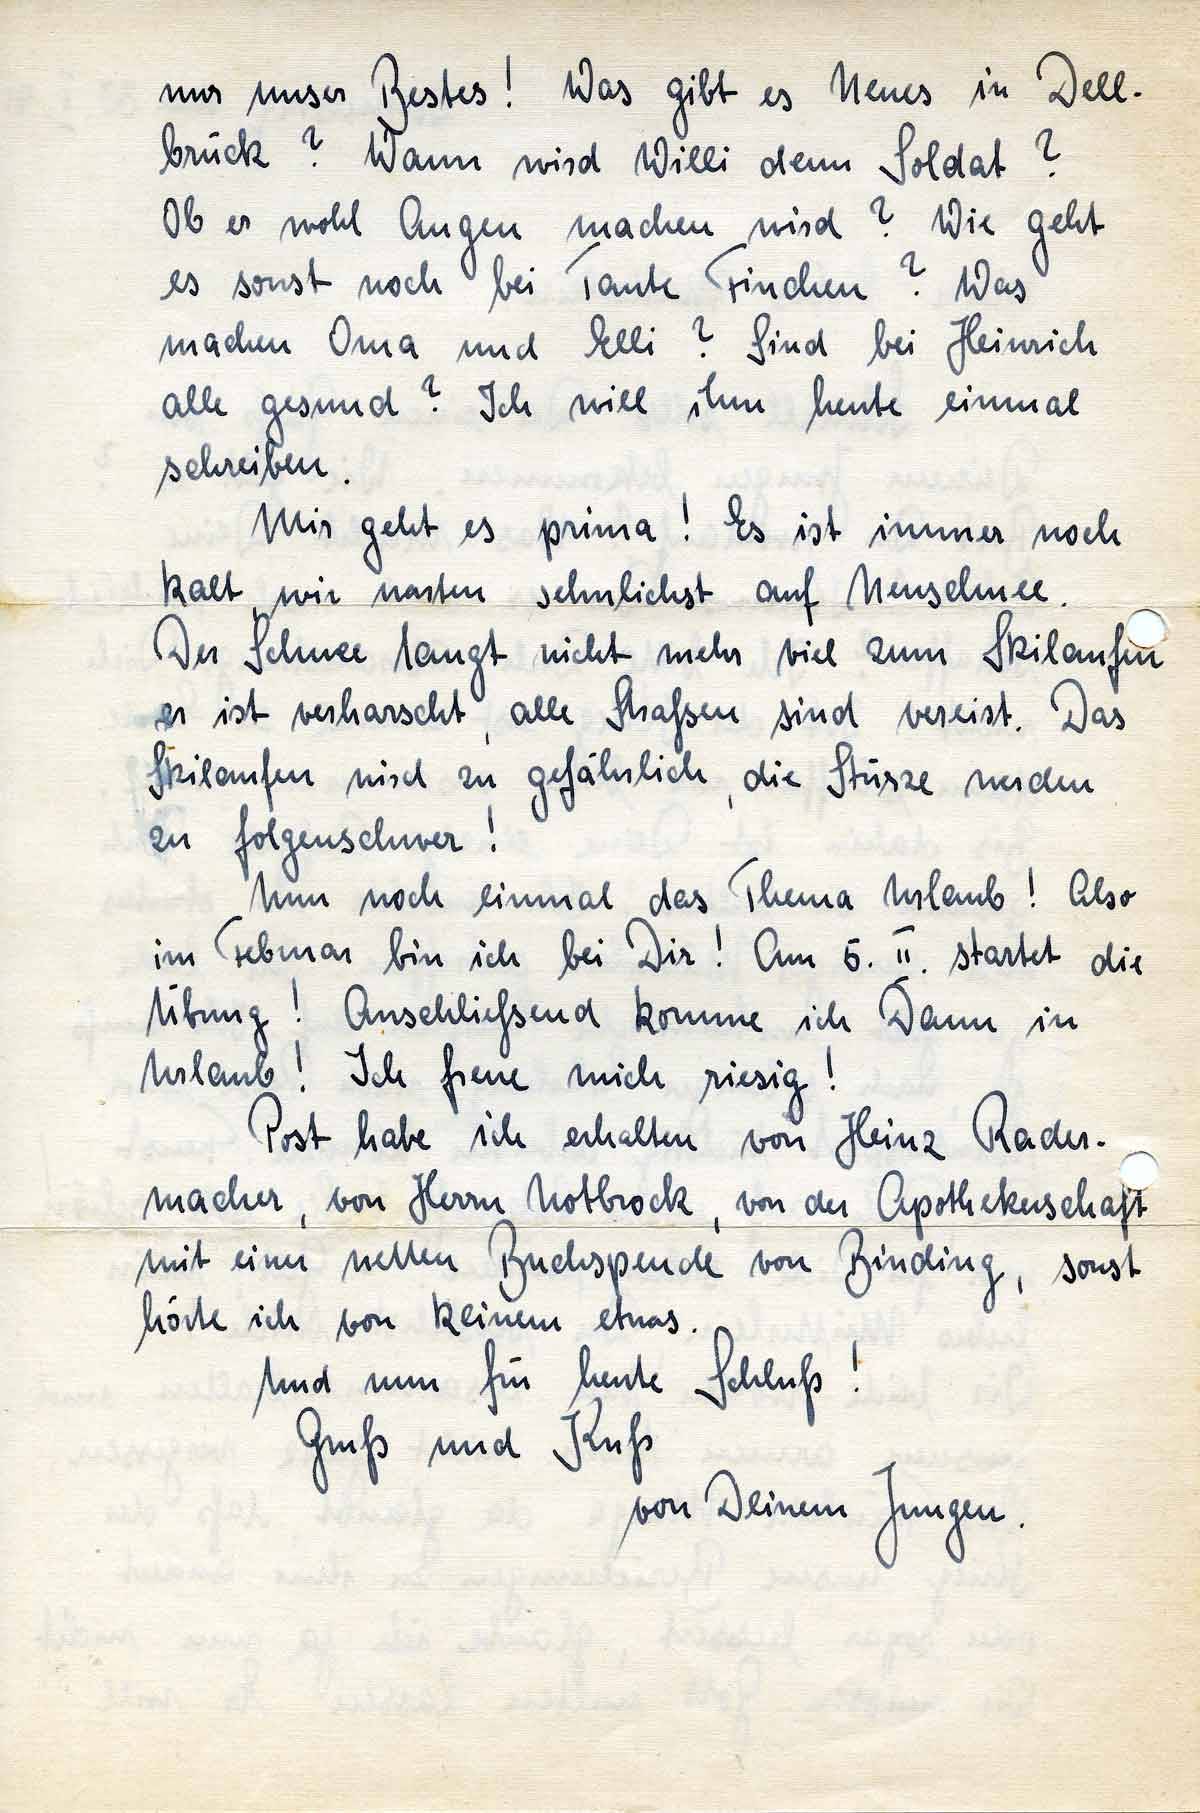 nur unser Bestes! Was gibt es Neues in Dell-
brück? Wann wird Willi denn Soldat?
Ob er wohl Augen machen wird? Wie geht
es sonst noch bei Tante Finchen? Was
machen Oma und Elli? Sind bei Heinrich
alle gesund? Ich will ihm heute einmal
schreiben.
Mir geht es prima! Es ist immer noch
kalt, wir warten sehnlichst auf Neuschnee.
Der Schnee langt nicht mehr viel zum Skilaufen
er ist verharscht, alle Strafsen sind vereist. Das
Skilaufen wird zu gefährlich, die Stürze werden
zu folgenschwer!
Nun noch einmal das Thema Urlaub! Also
im Februar bin ich bei Dir! Am 5. II. startet die
Übung! Anschliefsend komme ich Dann in
Urlaub! Ich freue mich riesig!
Post habe ich erhalten von Heinz Rader-
macher, von Herrn Notbrock, von der Apothekerschaft
mit einer netten Buchspende von Binding, sonst
hörte ich von keinem etwas.
Und nun für heute Schluß!
Gruß und Kuß
von Deinem Jungen.